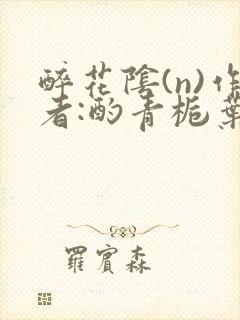 醉花陰(n)作
者:酌青栀葉
羅賓森